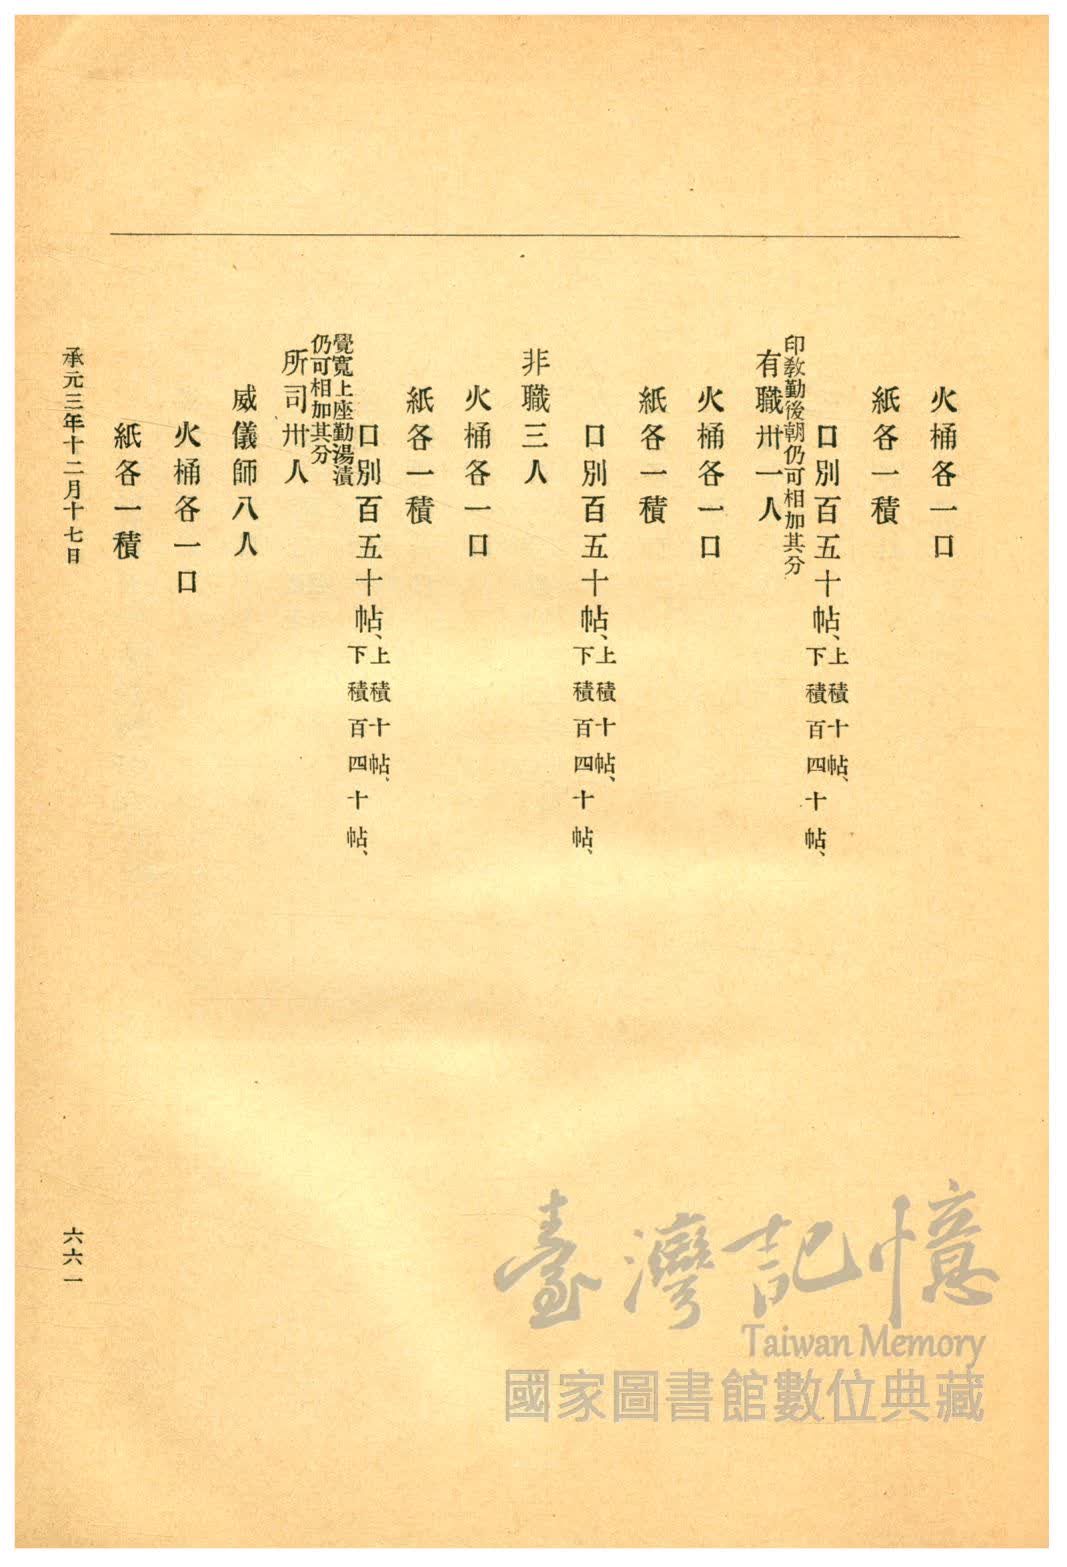 火桶各一口
紙各一積
口別百五十帖、上積十帖、
下積百四十帖、
印敎勤後朝仍可相加其分
有職卅一人
火桶各一口
紙各一積
口別百五十帖、上積十帖、
下積百四十帖、
非職三人
火桶各一口
紙各一積
口別百五十帖、上積十帖、
下積百四十帖、
覺寬上座勤湯漬
仍可相加其分
所司卅人
威儀師八人
火桶各一口
紙各一積
承元三年十二月十七日
六六一
臺灣記憶
Taiwan Memory
國家圖書館數位典藏